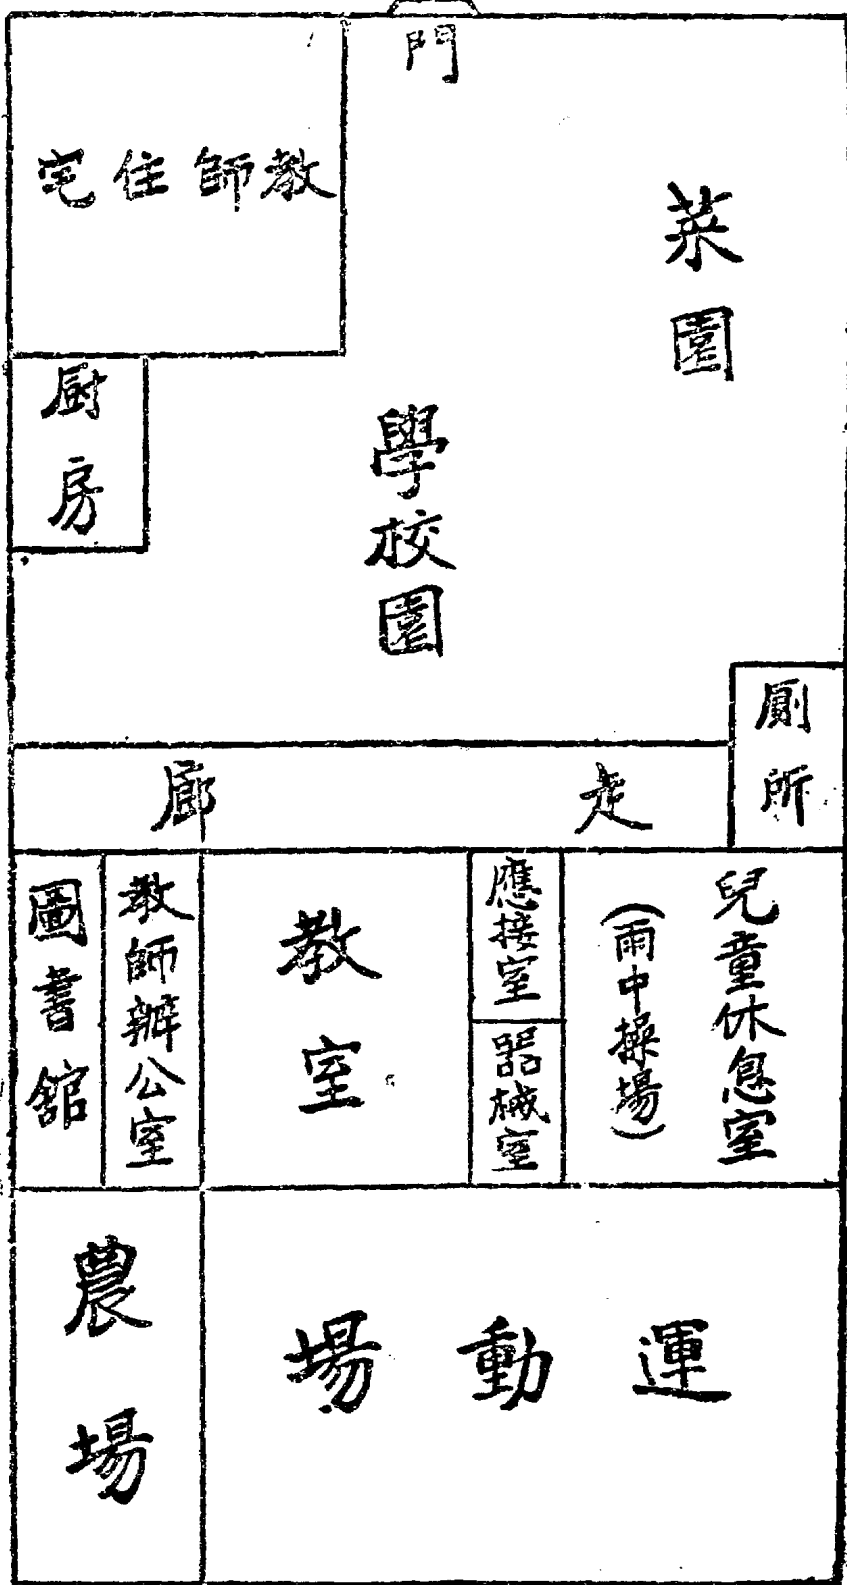 門
教師住宅
菜園
厨房
學校園
厠所
走廊
兒童休息室
(雨中操場)
應接室
器械室
教室
教師辦公室
圖書舘
運動場
農場